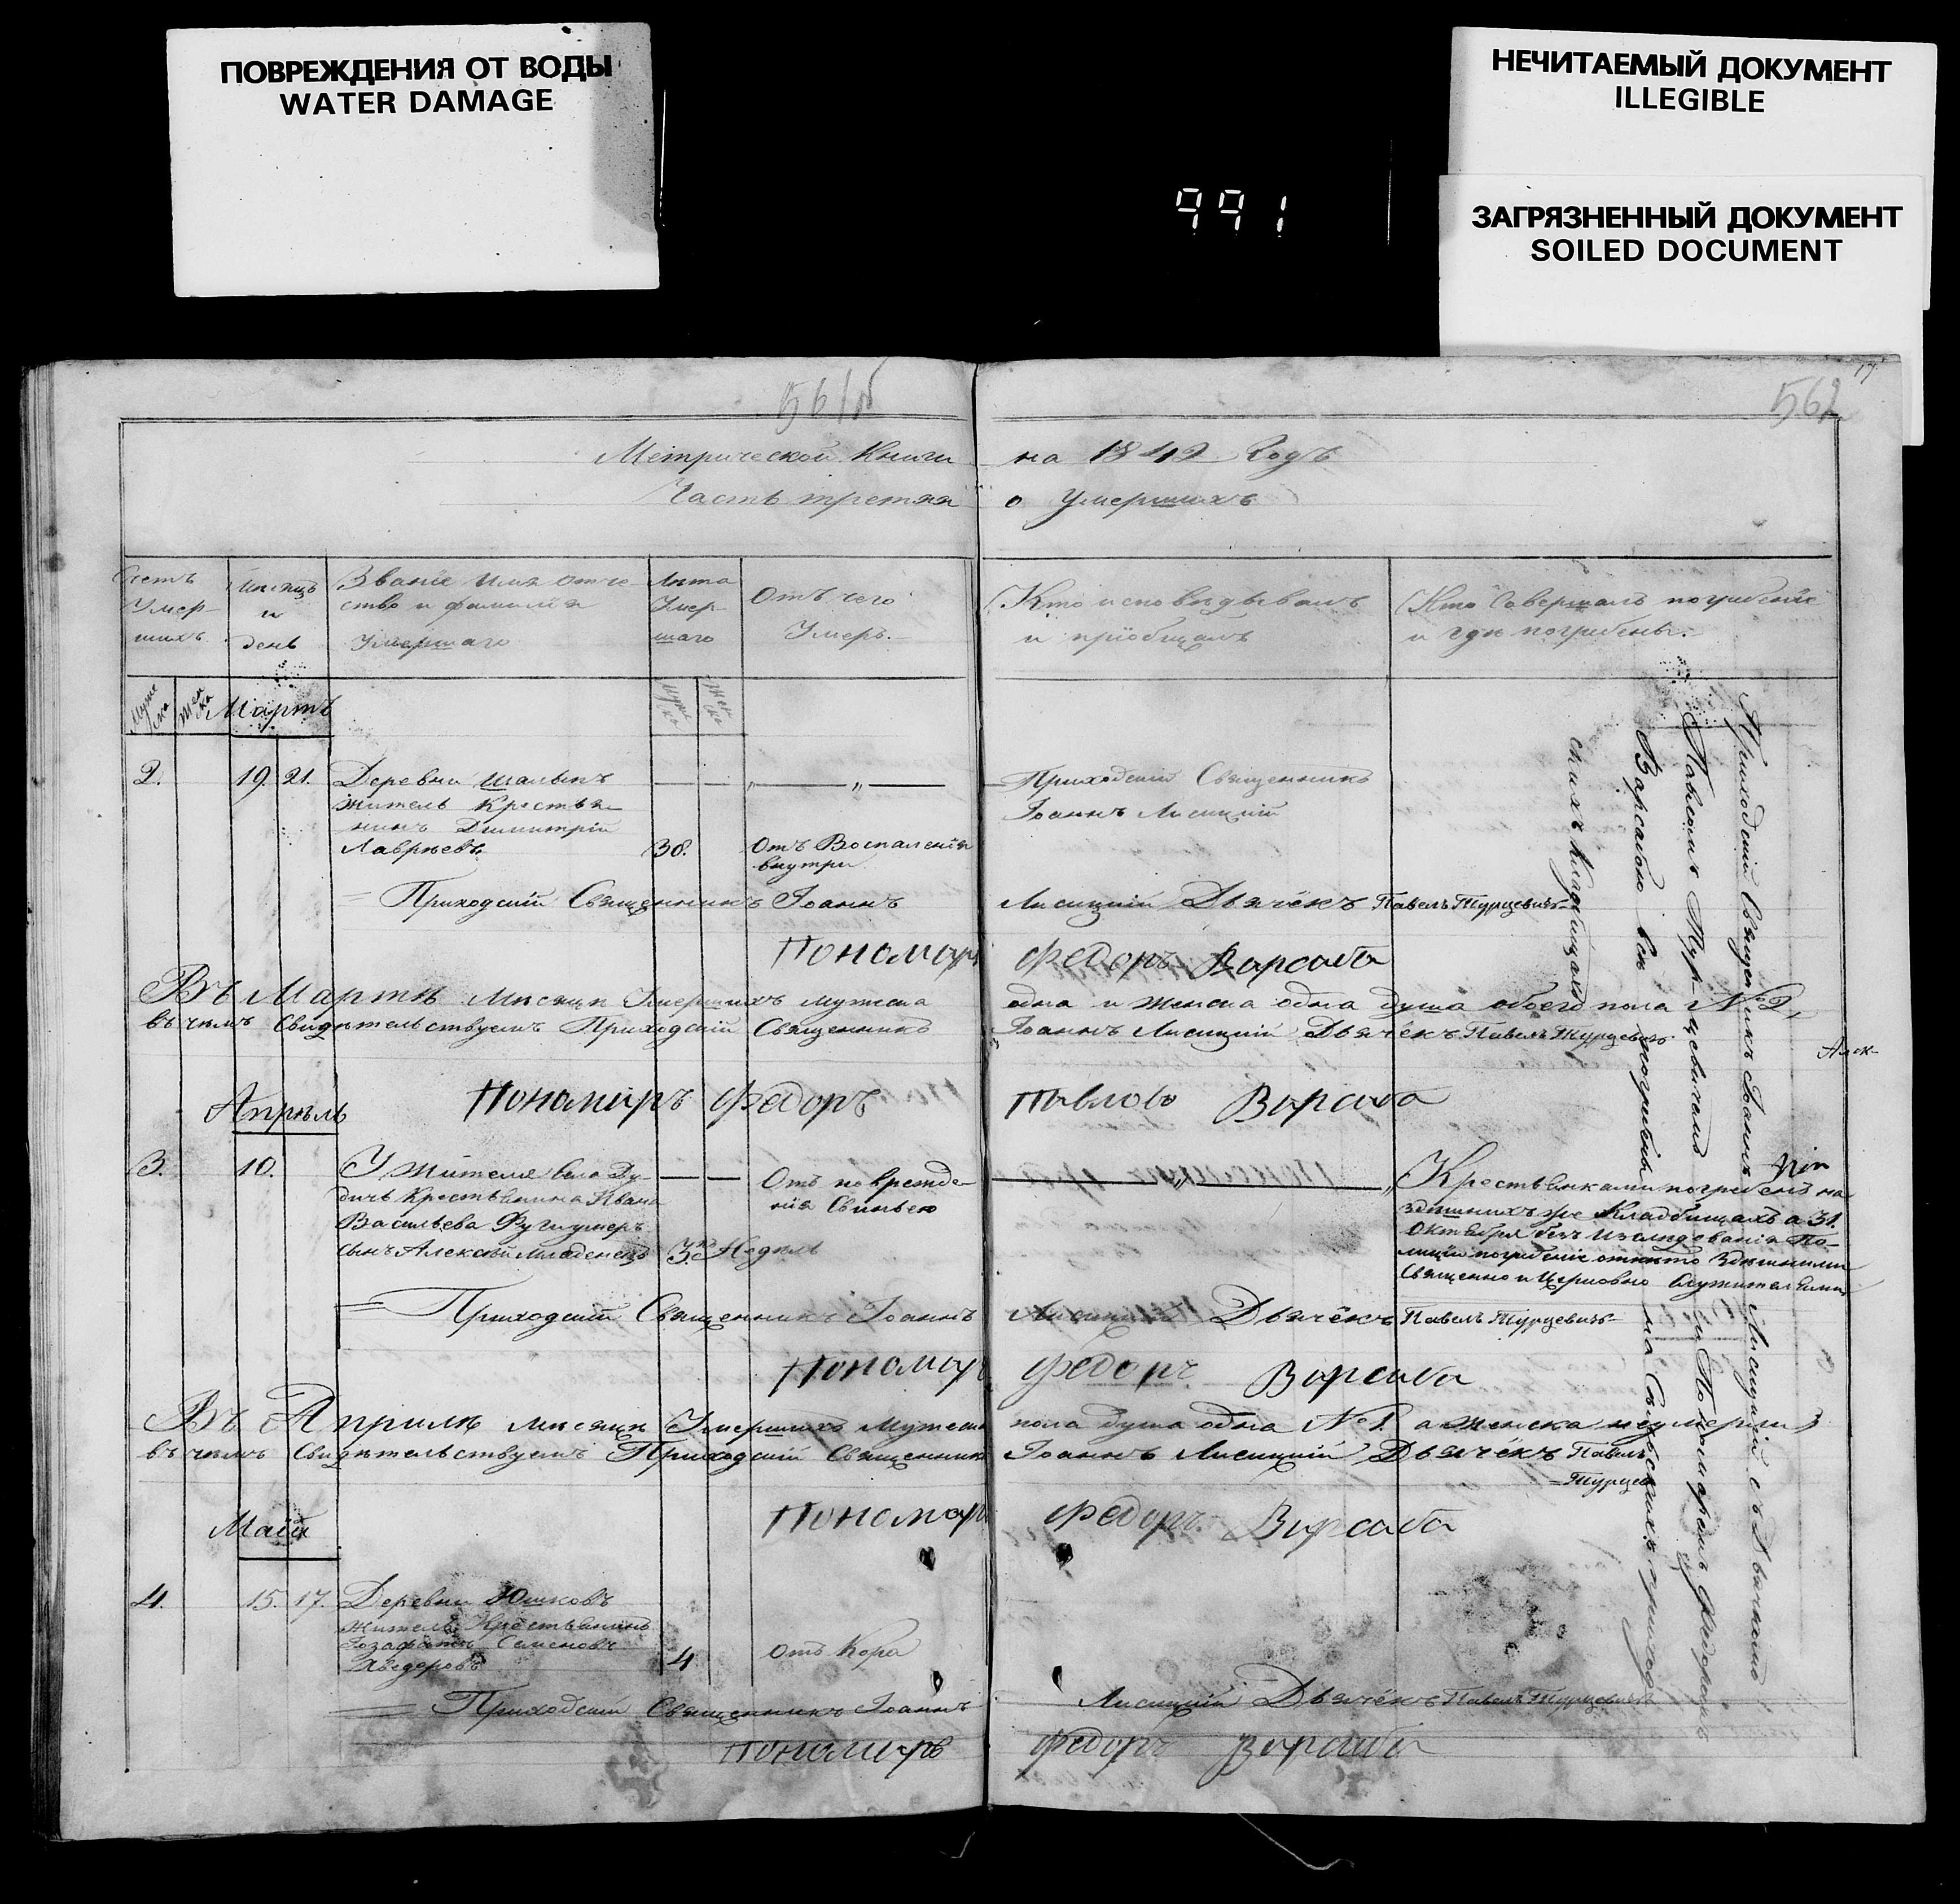 ПОВРЕЖДЕНИЯ ОТ ВОДЫ
WATER DAMAGE
НЕЧИТАЕМЫЙ ДОКУМЕНТ
ILLEGIBLE
ЗАГРЯЗНЕННЫЙ ДОКУМЕНТ
SOILED DOCUMENT
991
561
562
17
Метрической Книги на 1842 Годъ
Часть третяя о Умершихъ
Счетъ
Умер-
шихъ
Мѣсяцъ
и
день
Званіе Имя отче-
ство и фамилія
Умершаго
Лѣта
Умер-
шаго
Отъ чего
Умеръ.
Кто исповѣдывалъ
и пріобщалъ
Кто Совершалъ погребеніе
и гдѣ погребены.
Мартъ
2. 19. 21.
Деревни
житель Крестья-
нинъ Димитрій
Лаврѣевъ
38.
Отъ Воспаленія
внутри
Приходскій Священникъ
Іоаннъ Лисицкій
Приходскій Священникъ Іоаннъ Лисицкій Дьячёкъ Павелъ Турцевичъ
Пономарь Федоръ Варсаба
Въ Мартѣ Мѣсяцѣ Умершихъ мужеска одна и женска одна душа обоего пола №2,
въ чемъ Свидѣтельствуемъ Приходскій Священникъ Іоаннъ Лисицкій Дьячёкъ Павелъ Турцевичъ
Пономаръ Федоръ Павловъ Варсаба
Алек-
Апрѣль
3. 10.
У жителя Села Ду-
дичъ Крестьянина Ивана
Васильева умеръ
сынъ Алексѣй младенецъ
3. Недѣль
Отъ поврежде-
нія Свиньею
Крестьянами погребенъ на
здѣшнихъ же Кладбищахъ а 31.
Октября безъ изслѣдованія По-
лиціи погребеніе Здѣшними
Священно и Церковно Служителями
Приходскій Священникъ Іоаннъ Лисицкій Дьячёкъ Павелъ Турцевичъ
Пономарь Федоръ Варсаба
Въ Апрѣлѣ Мѣсяцѣ Умершихъ Мужеска пола душа одна №1. а женска неумерли
въ чемъ Свидѣтельствуемъ Приходскій Священникъ Іоаннъ Лисицкій Дьячёкъ Павелъ
Турцев
Пономарь Федоръ Варсаба
Маій
4. 15. 17.
Деревни Юшковъ
житель Крестьянинъ
Іозафатъ Семеновъ
4
Отъ Кора
Приходскій Священникъ Іоаннъ Лисицкій Дьячёкъ Павелъ Турцевичъ
Пономарь Федоръ Варсаба
Приходскій Священникъ Іоаннъ Лисицкій съ Дьячкомъ
Павломъ Турцевичемъ и Пономаремъ Федоромъ
Варсабою всѣ погребены на приход
скихъ Кладбищахъ